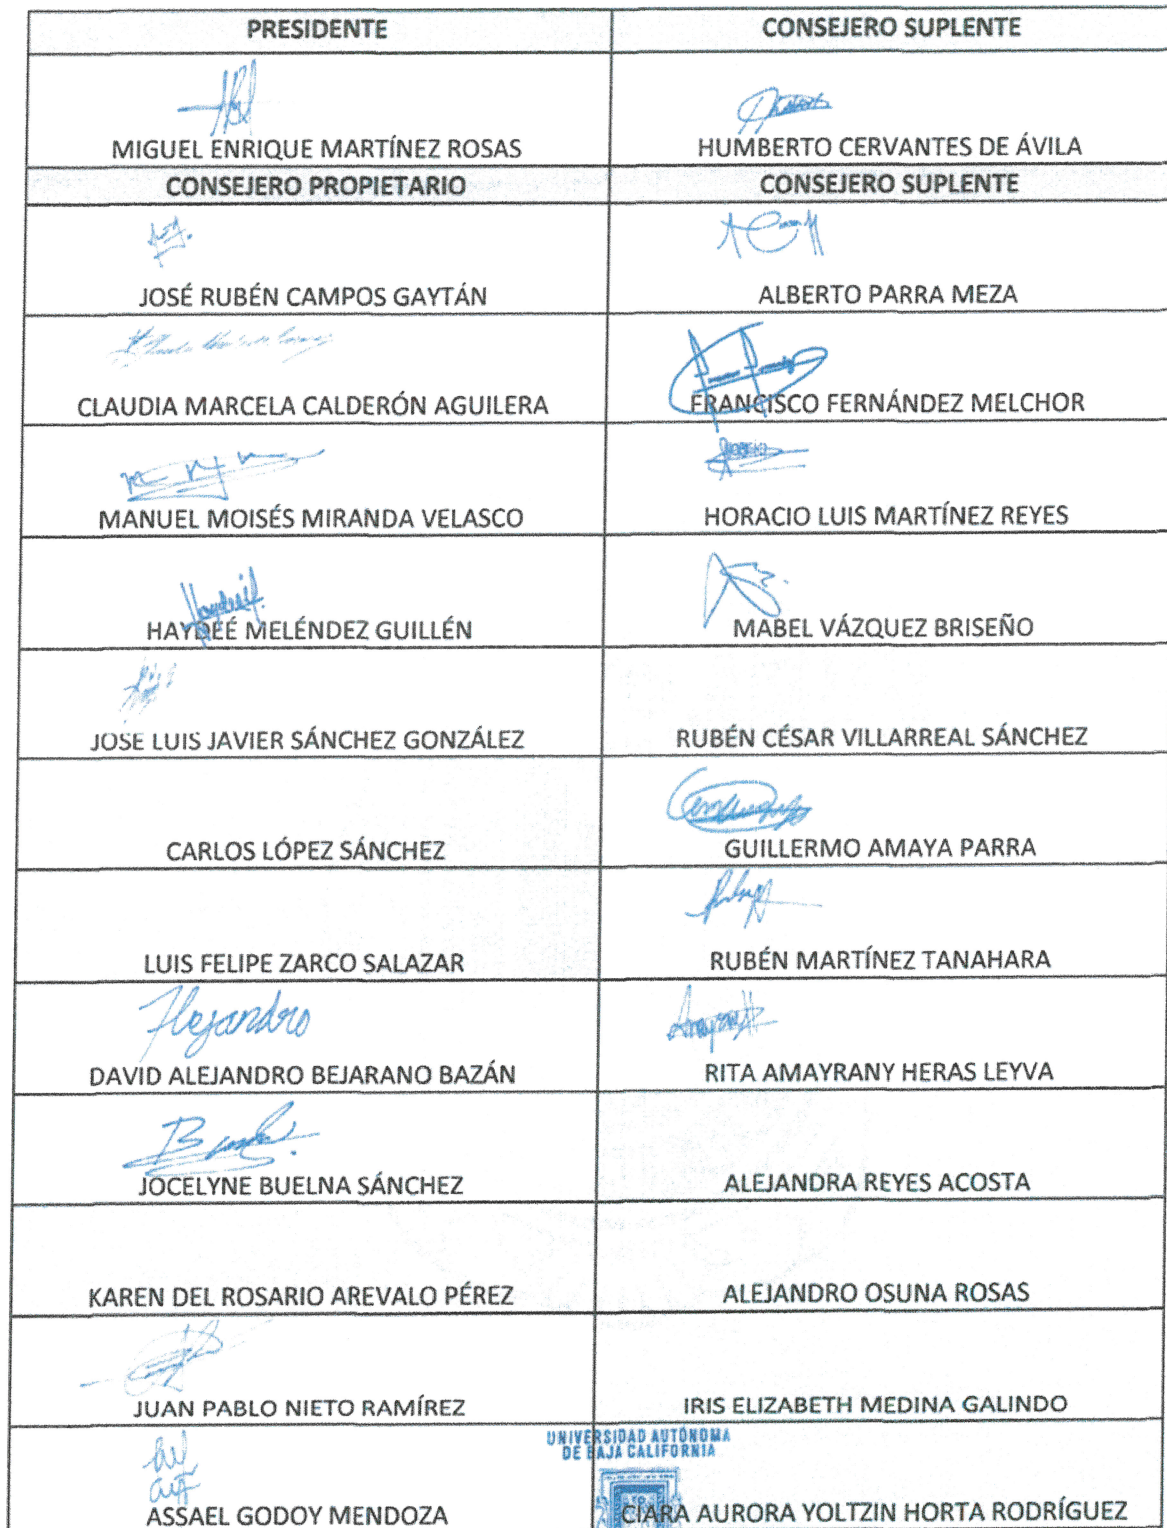 PRESIDENTE
CONSEJERO SUPLENTE
MIGUEL ENRIQUE MARTÍNEZ ROSAS
HUMBERTO CERVANTES DE ÁVILA
CONSEJERO PROPIETARIO
CONSEJERO SUPLENTE
JOSÉ RUBÉN CAMPOS GAYTÁN
ALBERTO PARRA MEZA
CLAUDIA MARCELA CALDERÓN AGUILERA
FRANCISCO FERNÁNDEZ MELCHOR
MANUEL MOISÉS MIRANDA VELASCO
HORACIO LUIS MARTÍNEZ REYES
HAYDEÉ MELÉNDEZ GUILLÉN
MABEL VÁZQUEZ BRISEÑO
JOSE LUIS JAVIER SÁNCHEZ GONZÁLEZ
RUBÉN CÉSAR VILLARREAL SÁNCHEZ
CARLOS LÓPEZ SÁNCHEZ
GUILLERMO AMAYA PARRA
LUIS FELIPE ZARCO SALAZAR
RUBÉN MARTÍNEZ TANAHARA
Alejandro
DAVID ALEJANDRO BEJARANO BAZÁN
RITA AMAYRANY HERAS LEYVA
JOCELYNE BUELNA SÁNCHEZ
ALEJANDRA REYES ACOSTA
KAREN DEL ROSARIO AREVALO PÉREZ
ALEJANDRO OSUNA ROSAS
JUAN PABLO NIETO RAMÍREZ
IRIS ELIZABETH MEDINA GALINDO
UNIVERSIDAD AUTÓNOMA
DE BAJA CALIFORNIA
ASSAEL GODOY MENDOZA
CIARA AURORA YOLTZIN HORTA RODRÍGUEZ